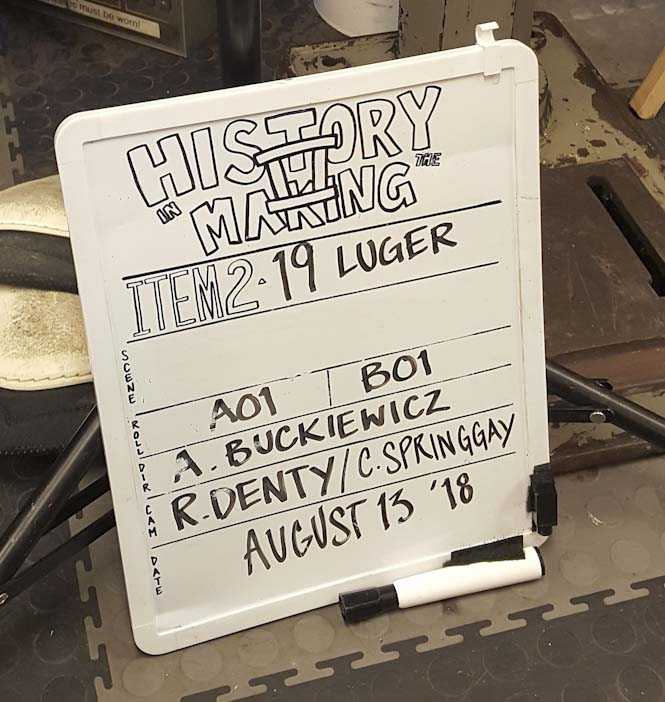 must be worn!
HISTORY
II
"IN MAKING THE"
ITEM 2.19 LUGER
SCENE
ROLL A01 B01
DIR A. BUCKIEWICZ
CAM R. DENTY/C. SPRINGGAY
DATE AUGUST 13 '18